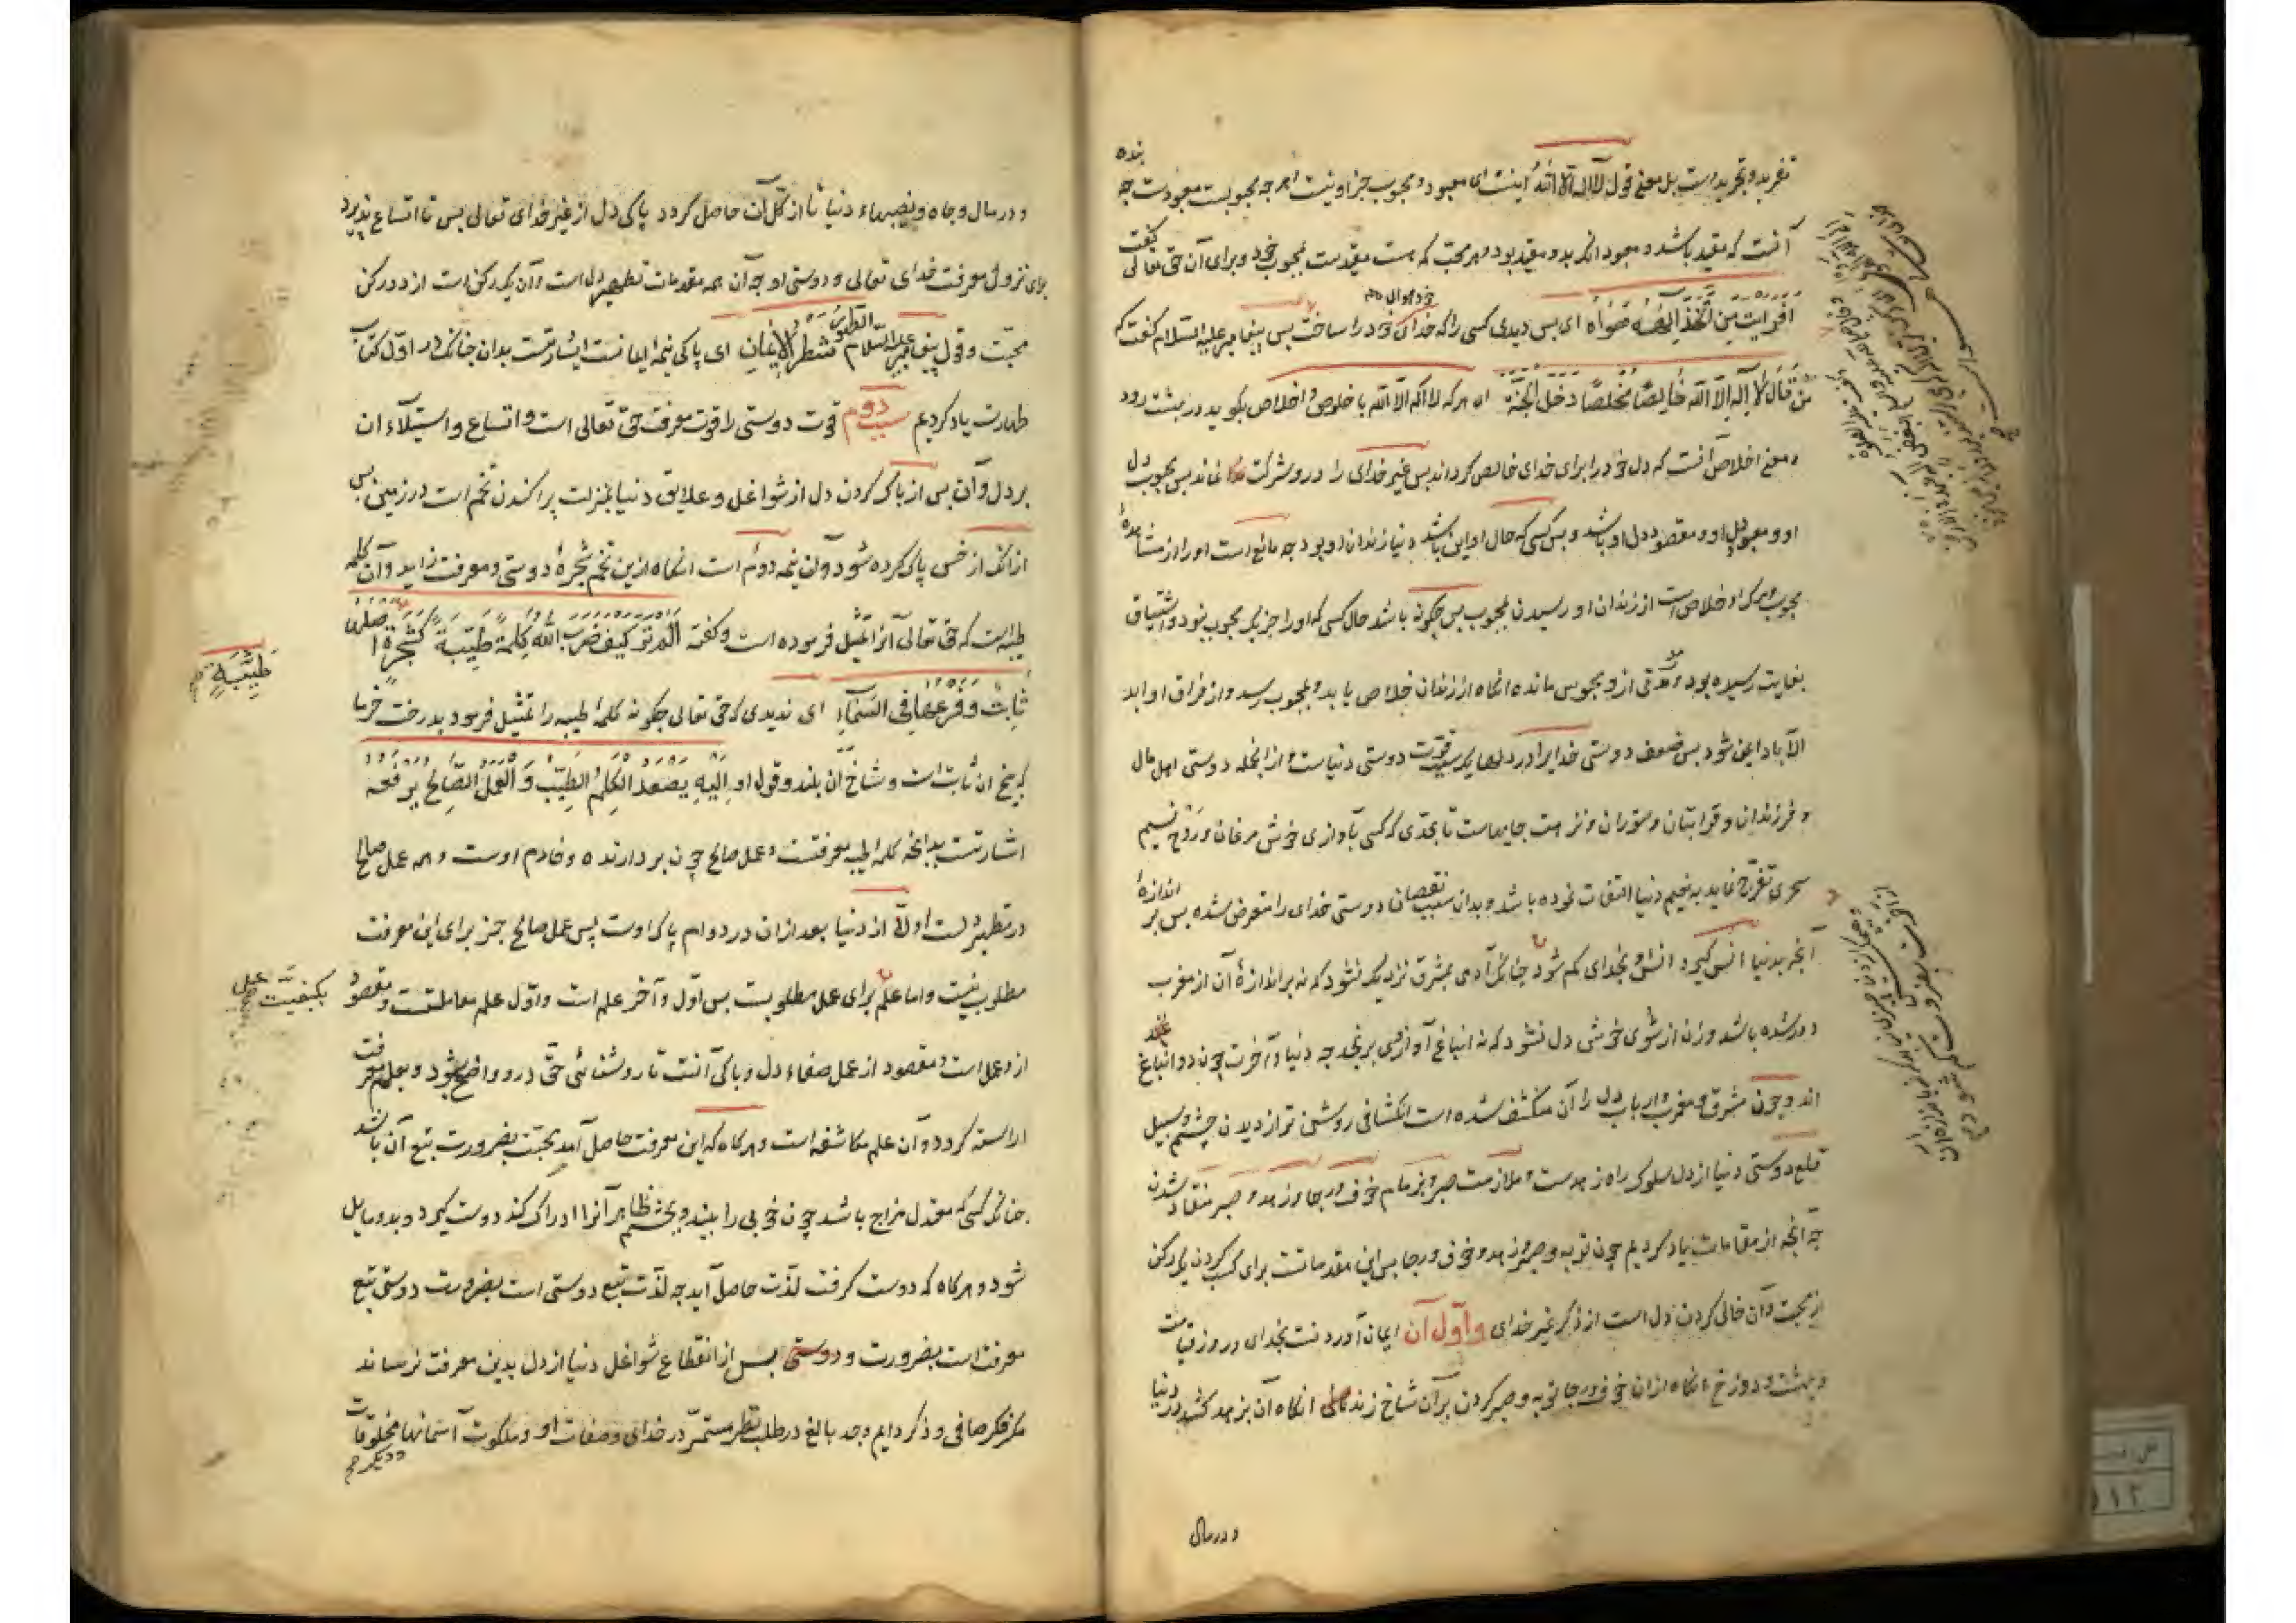 بنده
تفرید و تجریدست بل معنی قول لا اله الا الله اینست ای معبود و محبوب جز او نیست و هرچه محبوبست معبودست چه
آنست که مقید باشد و معبود آنکه بدو مقید بود و هر محب که هست مقیدست بمحبوب خود و برای آن حق تعالی گفت
افرایت من اتخذ الهه هواه ای پس دیدی کسی را که خدای خود را ساخت پس پیغامبر علیه السلام گفت که
من قال لا اله الا الله خالصا مخلصا دخل الجنة ای هرکه لا اله الا الله با خلوص و اخلاص بگوید در بهشت رود
و معنی اخلاص آنست که دل خود را برای خدای خالص گرداند پس غیر خدای را درو شرکت نماند پس محبوب دل
او و معبود دل او و مقصود دل او باشد و پس کسی که حال او این باشد دنیا زندان او بود چه مانع است او را از مشاهدهٔ
محبوب و مرک او خلاص است از زندان او رسیدن بمحبوب پس چگونه باشد حال کسی که او را جز یک محبوب نبود و اشتیاق
بغایت رسیده بود و مدتی ازو محبوس مانده آنگاه از زندان خلاص یابد و بمحبوب رسد و از فراق او ابد
الآباد ایمن شود پس ضعف دوستی خدایرا در دلها یک سبب قوت دوستی دنیاست و از آنجمله دوستی اهل مال
و فرزندان و قرابتان و ستوران و نزهت جایهاست تا بحدی که کسی بآوازی خوش مرغان و روح نسیم
سحری تفرج نماید به نعیم دنیا التفات نموده باشد و بدان سبب نقصان دوستی خدای را متعرض شده پس بر اندازهٔ
آنچه بدنیا انس گیرد انس او بخدای کم شود چنانکه آدمی بمشرق نزدیک نشود که نه بر اندازهٔ آن از مغرب
دور شده باشد و زن از شوی خوش دل نشود که نه انباغ او ازوی برنجد چه دنیا و آخرت چون دو انباغ
اند و چون مشرق و مغرب و ارباب دل را آن منکشف شده است انکشافی روشن تر از دیدن چشم و سبیل
قلع دوستی دنیا از دل سلوک راه زهدست و ملازمت صبر و بزمام خوف و رجا و زهد و صبر منقاد شدن
چه آنچه از مقامات یاد کردیم چون توبه و صبر و زهد و خوف و رجا پس این مقدماتست برای کسب کردن یک رکن
از محبت و آن خالی کردن دل است از ذکر غیر خدای و اول آن ایمان آوردنست بخدای و روز قیامت
و بهشت و دوزخ آنگاه از آن خوف و رجا و توبه و صبر کردن بر آن شاخ زند آنگاه آن بزهد کشد در دنیا
و در مال
و در مال و جاه و نصیبهاء دنیا تا از کل آن حاصل گردد پاکی دل از غیر خدای تعالی پس تا اتساع پذیرد
برای نزول معرفت خدای تعالی و دوستی او چه آن همه مقدمات تطهیر دل است و آن یک رکن است از دو رکن
محبت و قول پیغامبر علیه السلام الطهور شطر الایمان ای پاکی نیمه ایمانست اشارتست بدان چنانکه در اول کتاب
طهارت یاد کردیم سبب دوم قوت دوستی را قوت معرفت حق تعالی است و اتساع و استیلاء آن
بر دل و آن پس از پاک کردن دل از شواغل و علایق دنیا بمنزلت پراکندن تخم است در زمین پس
از آنک از خس پاک کرده شود و آن نیمه دوم است آنگاه ازین تخم شجرهٔ دوستی و معرفت زاید و آن کلمه
طیبه است که حق تعالی آنرا تمثیل فرموده است و گفته الم تر کیف ضرب الله کلمة طیبة کشجرة اصلها
طَیِّبَةٍ
ثابت و فرعها فی السماء ای ندیدی که حق تعالی چگونه کلمهٔ طیبه را تمثیل فرمود بدرخت خرما
که بیخ آن ثابت است و شاخ آن بلند و قول او الیه یصعد الکلم الطیب و العمل الصالح یرفعه
اشارتست بدانچه کلمه طیبه معرفتست و عمل صالح چون بردارنده و خادم اوست و همه عمل صالح
در تطهیر دلست اولا از دنیا بعد از آن در دوام پاکی اوست پس عمل صالح جز برای این معرفت
مطلوب نیست و اما علم برای عمل مطلوبست پس اول و آخر علم است و اول علم معاملتست و مقصود
بکیفیت عمل
ازو عمل است و مقصود از عمل صفاء دل و پاکی آنست تا روشنائی حق درو واضح شود و بعلم معرفت
آراسته گردد و آن علم مکاشفه است و هرگاه که این معرفت حاصل آمد محبت بضرورت تبع آن باشد
چنانکه کسی که معتدل مزاج باشد چون خوبی را بیند و بچشم ظاهر آنرا ادراک کند دوست گیرد و بدو مایل
شود و هرگاه که دوست گرفت لذت حاصل آید چه لذت تبع دوستی است بضرورت دوستی تبع
معرفت است بضرورت و دوستی پس از انقطاع شواغل دنیا از دل بدین معرفت نرساند
مگر فکر صافی و ذکر دایم و جد بالغ در طلب و نظر مستمر در خدای و صفات او و ملکوت آسمانها و مخلوقات
دیگر